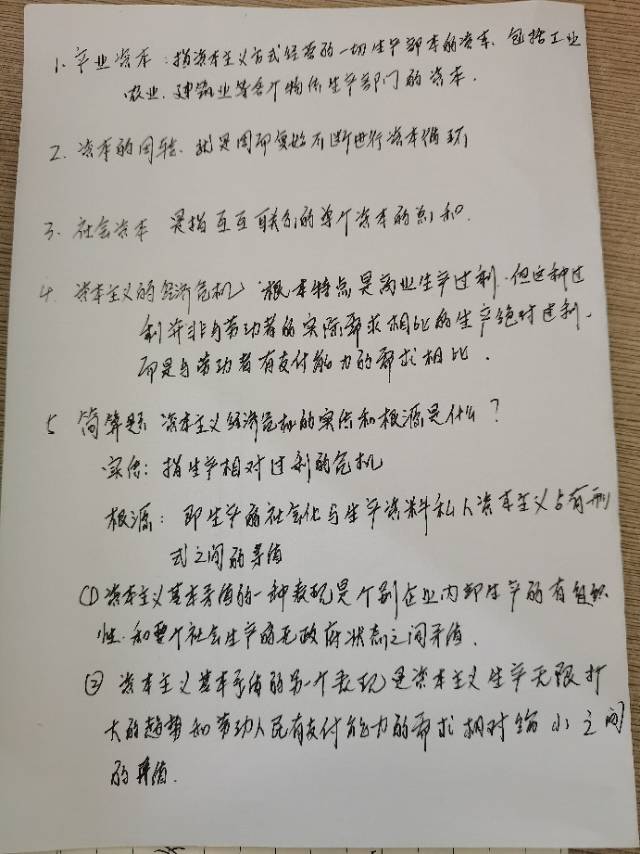 1. 产业资本：指资本主义方式经营的一切生产部本的资本，包括工业
农业、建筑业等各个物质生产部门的资本.
2. 资本的周转、就是周而复始不断进行资本循环
3. 社会资本 是指互互联系的单个资本的总和.
4. 资本主义的经济危机 根本特点是商业生产过剩.但这种过
剩并非与劳动者的实际需求相比的生产绝对过剩.
而是与劳动者有支付能力的需求相比.
5 简算题 资本主义经济危机的实质和根源是什么？
实质：指生产相对过剩的危机
根源：即生产的社会化与生产资料私人资本主义占有形
式之间的矛盾
(1) 资本主义基本矛盾的一种表现是个别企业内部生产的有组织
性.和整个社会生产的无政府状态之间矛盾.
② 资本主义基本矛盾的另一个表现是资本主义生产无限扩
大的趋势和劳动人民有支付能力的需求相对缩小之间
的矛盾.